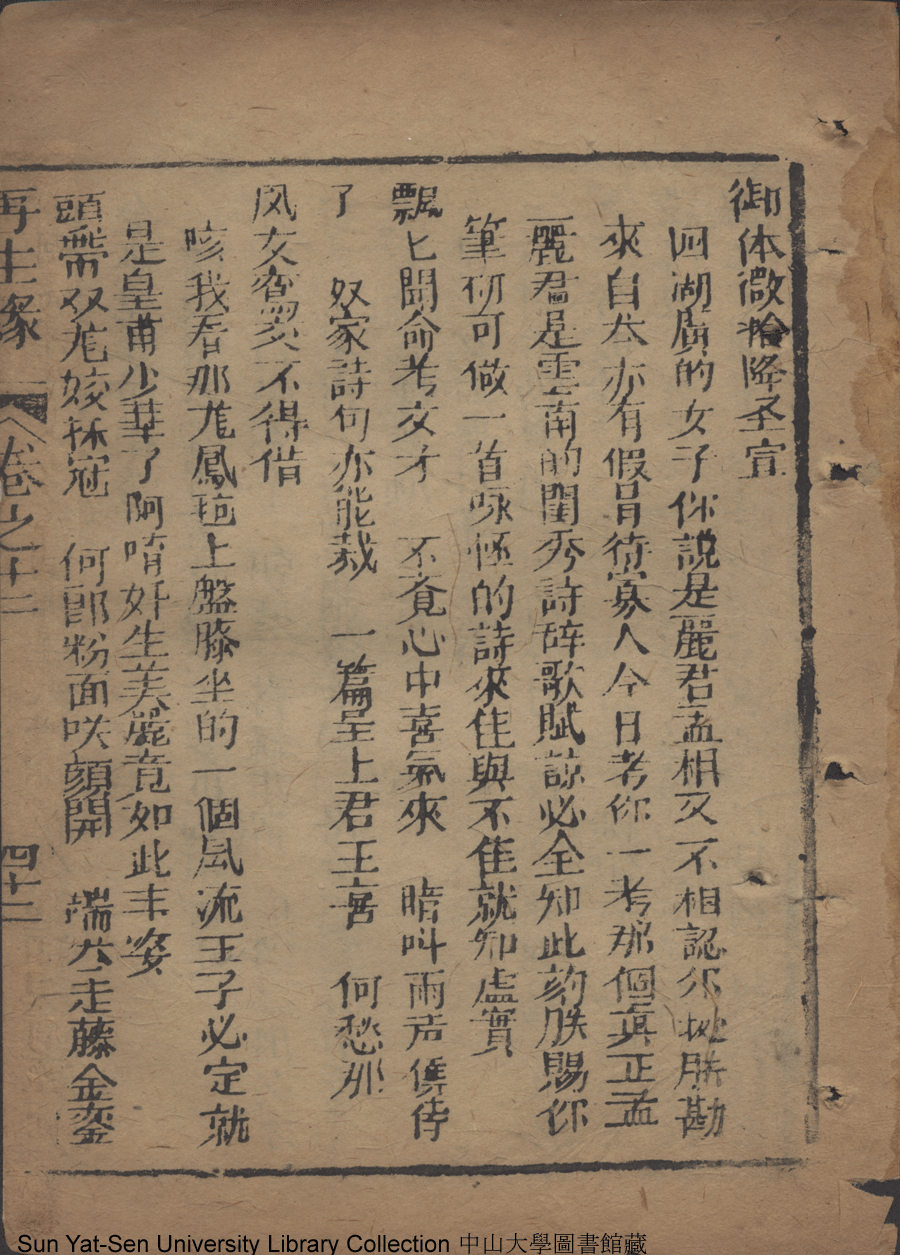 御体微抬降圣宣
回湖廣的女子你說是麗君孟相又不相認你朕勘
來自本亦有假冒待寡人今日考你一考那個真正孟
麗君是雲南的閨秀詩辞歌賦諒必全知此刻朕賜你
筆研可做一首咏懷的詩來佳與不佳就知虛實
飄匕聞命考文才　不覚心中喜氣來　暗叫雨君侥侍
了　奴家詩句亦能裁　一篇呈上君王喜　何愁那
凤女奮不得偕
咳我看那尨鳳毡上盤膝坐的一個风流王子必定就
是皇甫少華了阿唷好生美麗竟如此丰姿
頭帶双尨姣抹冠　何郎粉面咲顏開　端坐藤金銮
再生緣　卷之十二　四十二
Sun Yat-Sen University Library Collection 中山大學圖書館藏